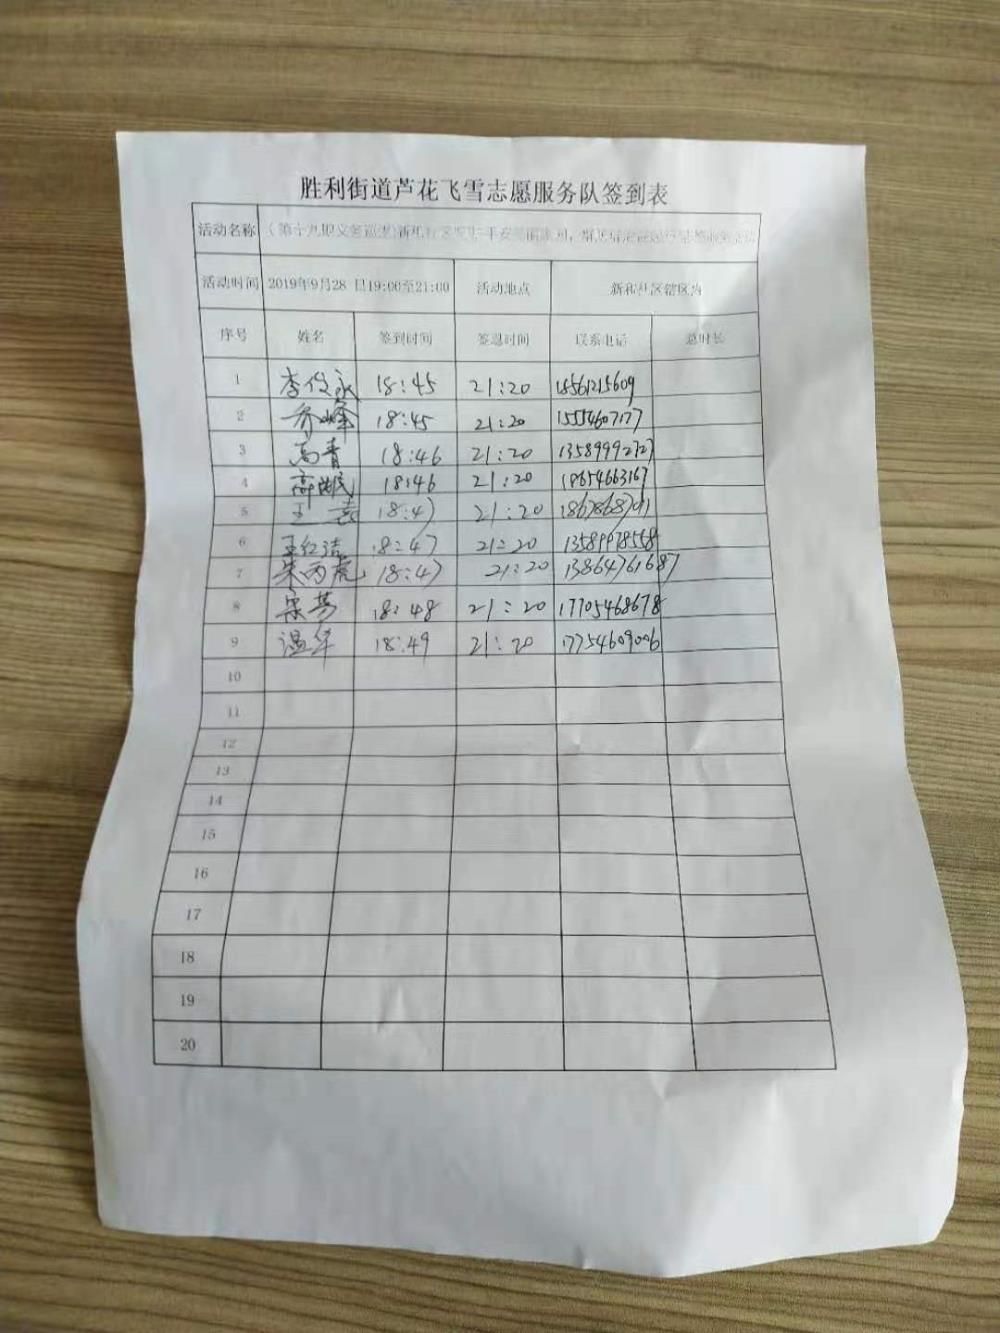 胜利街道芦花飞雪志愿服务队签到表
活动名称
活动时间 2019年9月28 日19:00至21:00 活动地点 新和社区辖区内
序号 姓名 签到时间 签退时间 联系电话 总时长
1 李俊永 18:45 21:20 18561215609
2 乔峰 18:45 21:20 15554607177
3 高青 18:46 21:20 13589992727
4 18:46 21:20 18654663167
5 18:47 21:20
6 王红洁 18:47 21:20 13589978558
7 朱丙虎 18:47 21:20 13864761687
8 宋芳 18:48 21:20 17705468678
9 温华 18:49 21:20 17754609006
10
11
12
13
14
15
16
17
18
19
20